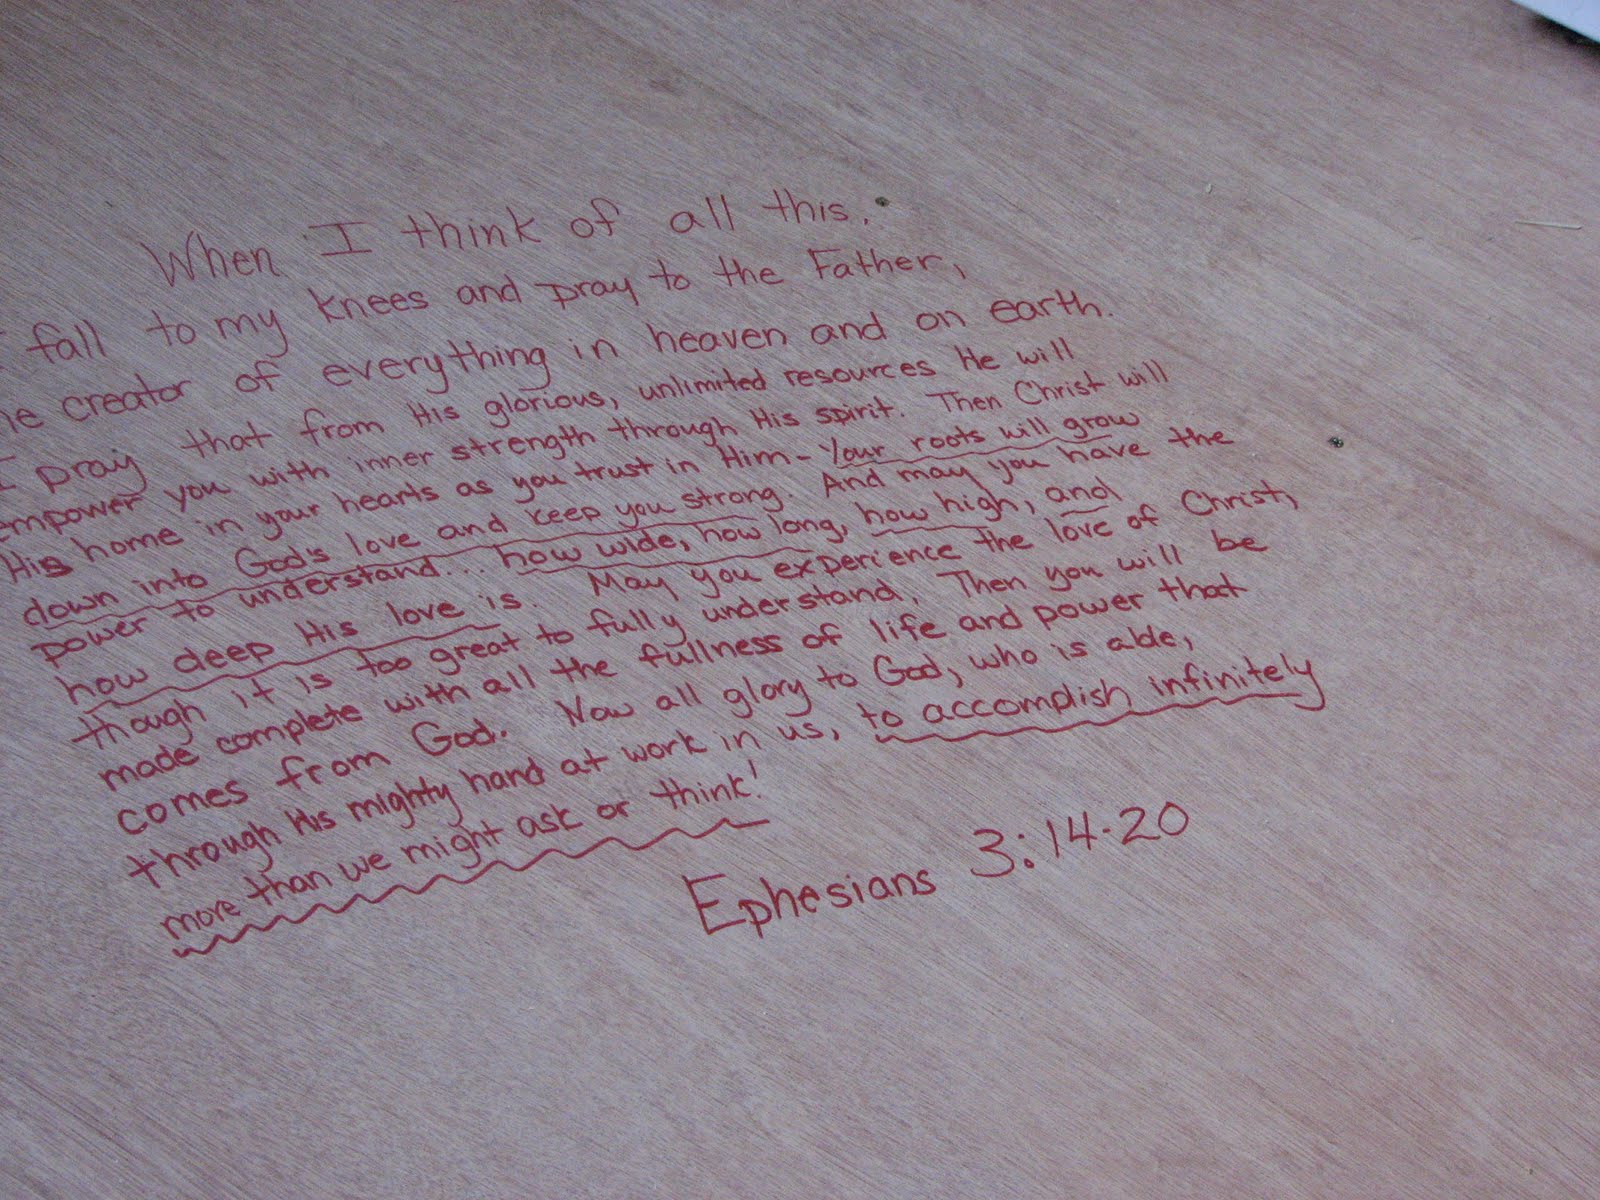 When I think of all this,
I fall to my knees and pray to the Father,
he creator of everything in heaven and on earth.
I pray that from His glorious, unlimited resources He will
empower you with inner strength through His spirit. Then Christ will
His home in your hearts as you trust in Him - Your roots will grow
down into God's love and keep you strong. And may you have the
power to understand... how wide, how long, how high, and
how deep His love is. May you experience the love of Christ,
though it is too great to fully understand. Then you will be
made complete with all the fullness of life and power that
comes from God. Now all glory to God, who is able,
through His mighty hand at work in us, to accomplish infinitely
more than we might ask or think!
Ephesians 3:14-20